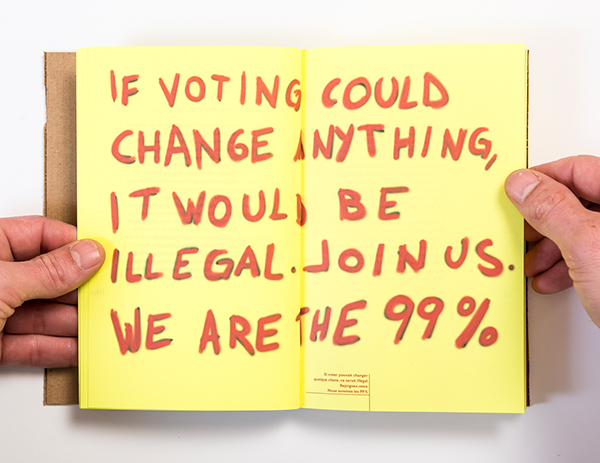 IF VOTING COULD
CHANGE ANYTHING,
IT WOULD BE
ILLEGAL. JOIN US.
WE ARE THE 99%
Si voter pouvait changer
quelque chose, ce serait illégal
Rejoignez-nous
Nous sommes les 99%